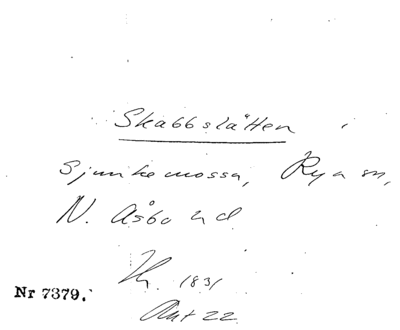 Skabbslätten
Sjunkemossa, Rya sn,
N. Åsbo hd
1831
Nr 7379.
Akt 22